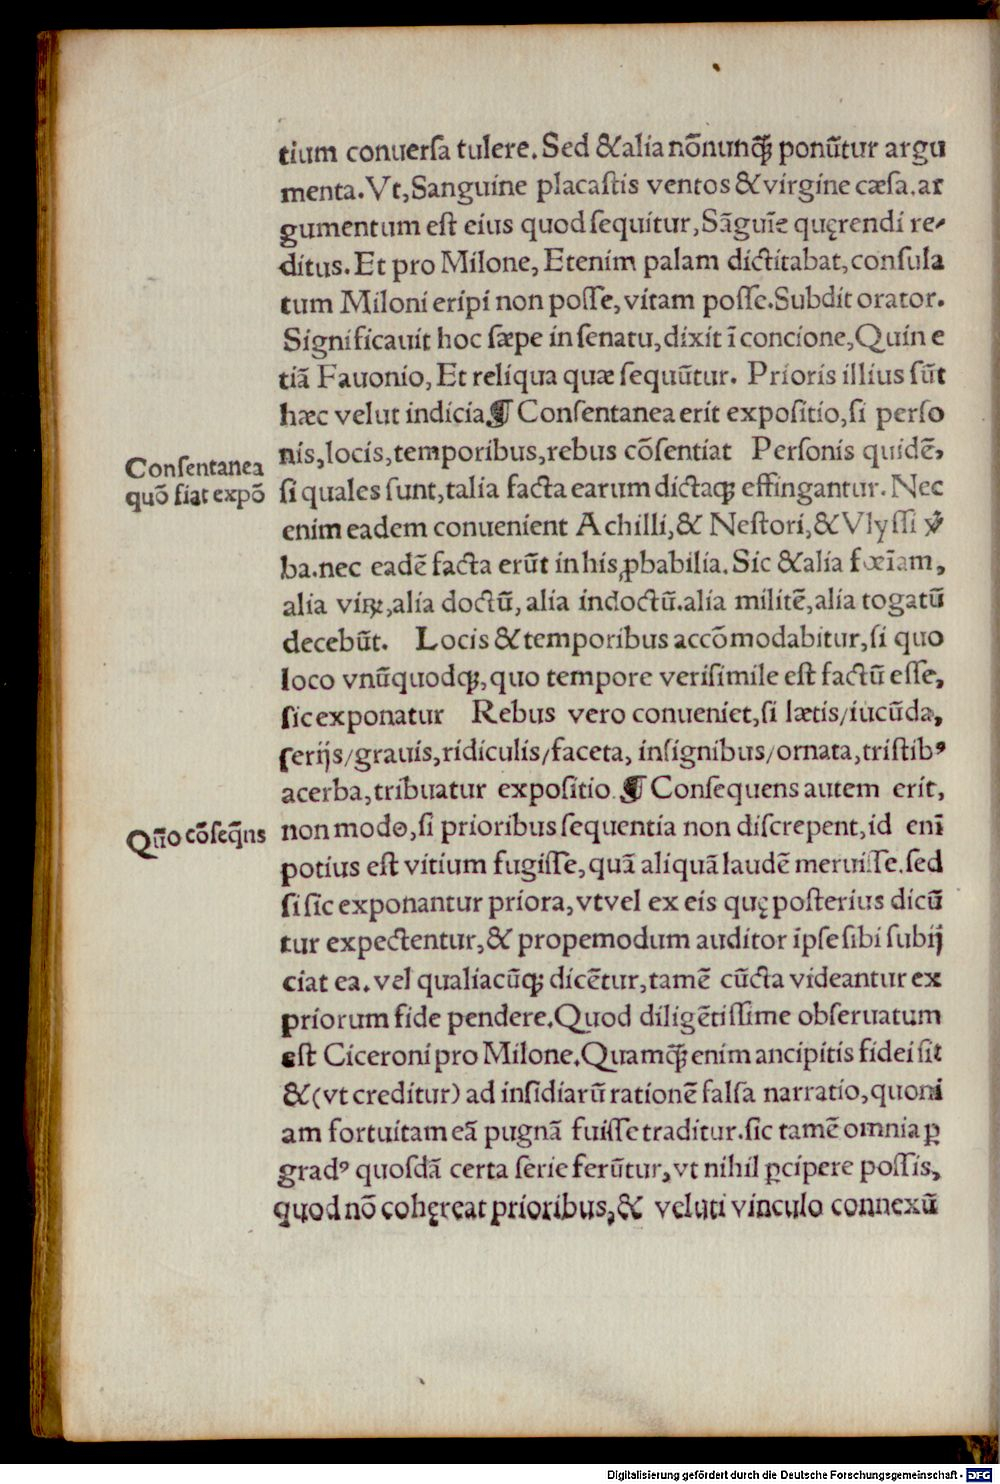 tium conuerſa tulere. Sed &alia nõnunqꝫ ponũtur argu
menta. Vt, Sanguine placaſtis ventos & virgine cæſa. ar
gumentum eſt eius quod ſequitur, Sãguĩe quęrendi re-
ditus. Et pro Milone, Etenim palam dictitabat, conſula
tum Miloni eripi non poſſe, vitam poſſe. Subdit orator.
Significauit hoc ſæpe in ſenatu, dixit ĩ concione, Quin e
tiã Fauonio, Et reliqua quæ ſequũtur. Prioris illius ſũt
hæc velut indicia. ¶ Conſentanea erit expoſitio, ſi perſo
Conſentanea
quõ fiat expõ
nis, locis, temporibus, rebus cõſentiat Perſonis quidẽ,
ſi quales ſunt, talia facta earum dictaqꝫ effingantur. Nec
enim eadem conuenient Achilli, & Neſtori, & Vlyſſi v̾
ba. nec eadẽ facta erũt in his ꝓbabilia. Sic & alia fœĩam,
alia viꝝ, alia doctũ, alia indoctũ. alia militẽ, alia togatũ
decebũt. Locis & temporibus accõmodabitur, ſi quo
loco vnũquodqꝫ, quo tempore veriſimile eſt factũ eſſe,
ſic exponatur Rebus vero conueniet, ſi lætis/iucũda,
ſerijs/grauis, ridiculis/faceta, inſignibus/ornata, triſtibꝰ
acerba, tribuatur expoſitio. ¶ Conſequens autem erit,
Qũo cõſeq̃ns
non modo, ſi prioribus ſequentia non diſcrepent, id enĩ
potius eſt vitium fugiſſe, quã aliquã laudẽ meruiſſe. ſed
ſi ſic exponantur priora, vt vel ex eis quę poſterius dicũ
tur expectentur, & propemodum auditor ipſe ſibi ſubij
ciat ea. vel qualiacũqꝫ dicẽtur, tamẽ cũcta videantur ex
priorum fide pendere. Quod diligẽtiſſime obſeruatum
eſt Ciceroni pro Milone. Quamqꝫ enim ancipitis fidei ſit
& (vt creditur) ad inſidiarũ rationẽ falſa narratio, quoni
am fortuitam eã pugnã fuiſſe traditur. ſic tamẽ omnia ꝑ
gradꝰ quoſdã certa ſerie ferũtur, vt nihil ꝑcipere poſſis,
quod nõ cohęreat prioribus, & veluti vinculo connexũ
Digitalisierung gefördert durch die Deutsche Forschungsgemeinschaft - DFG